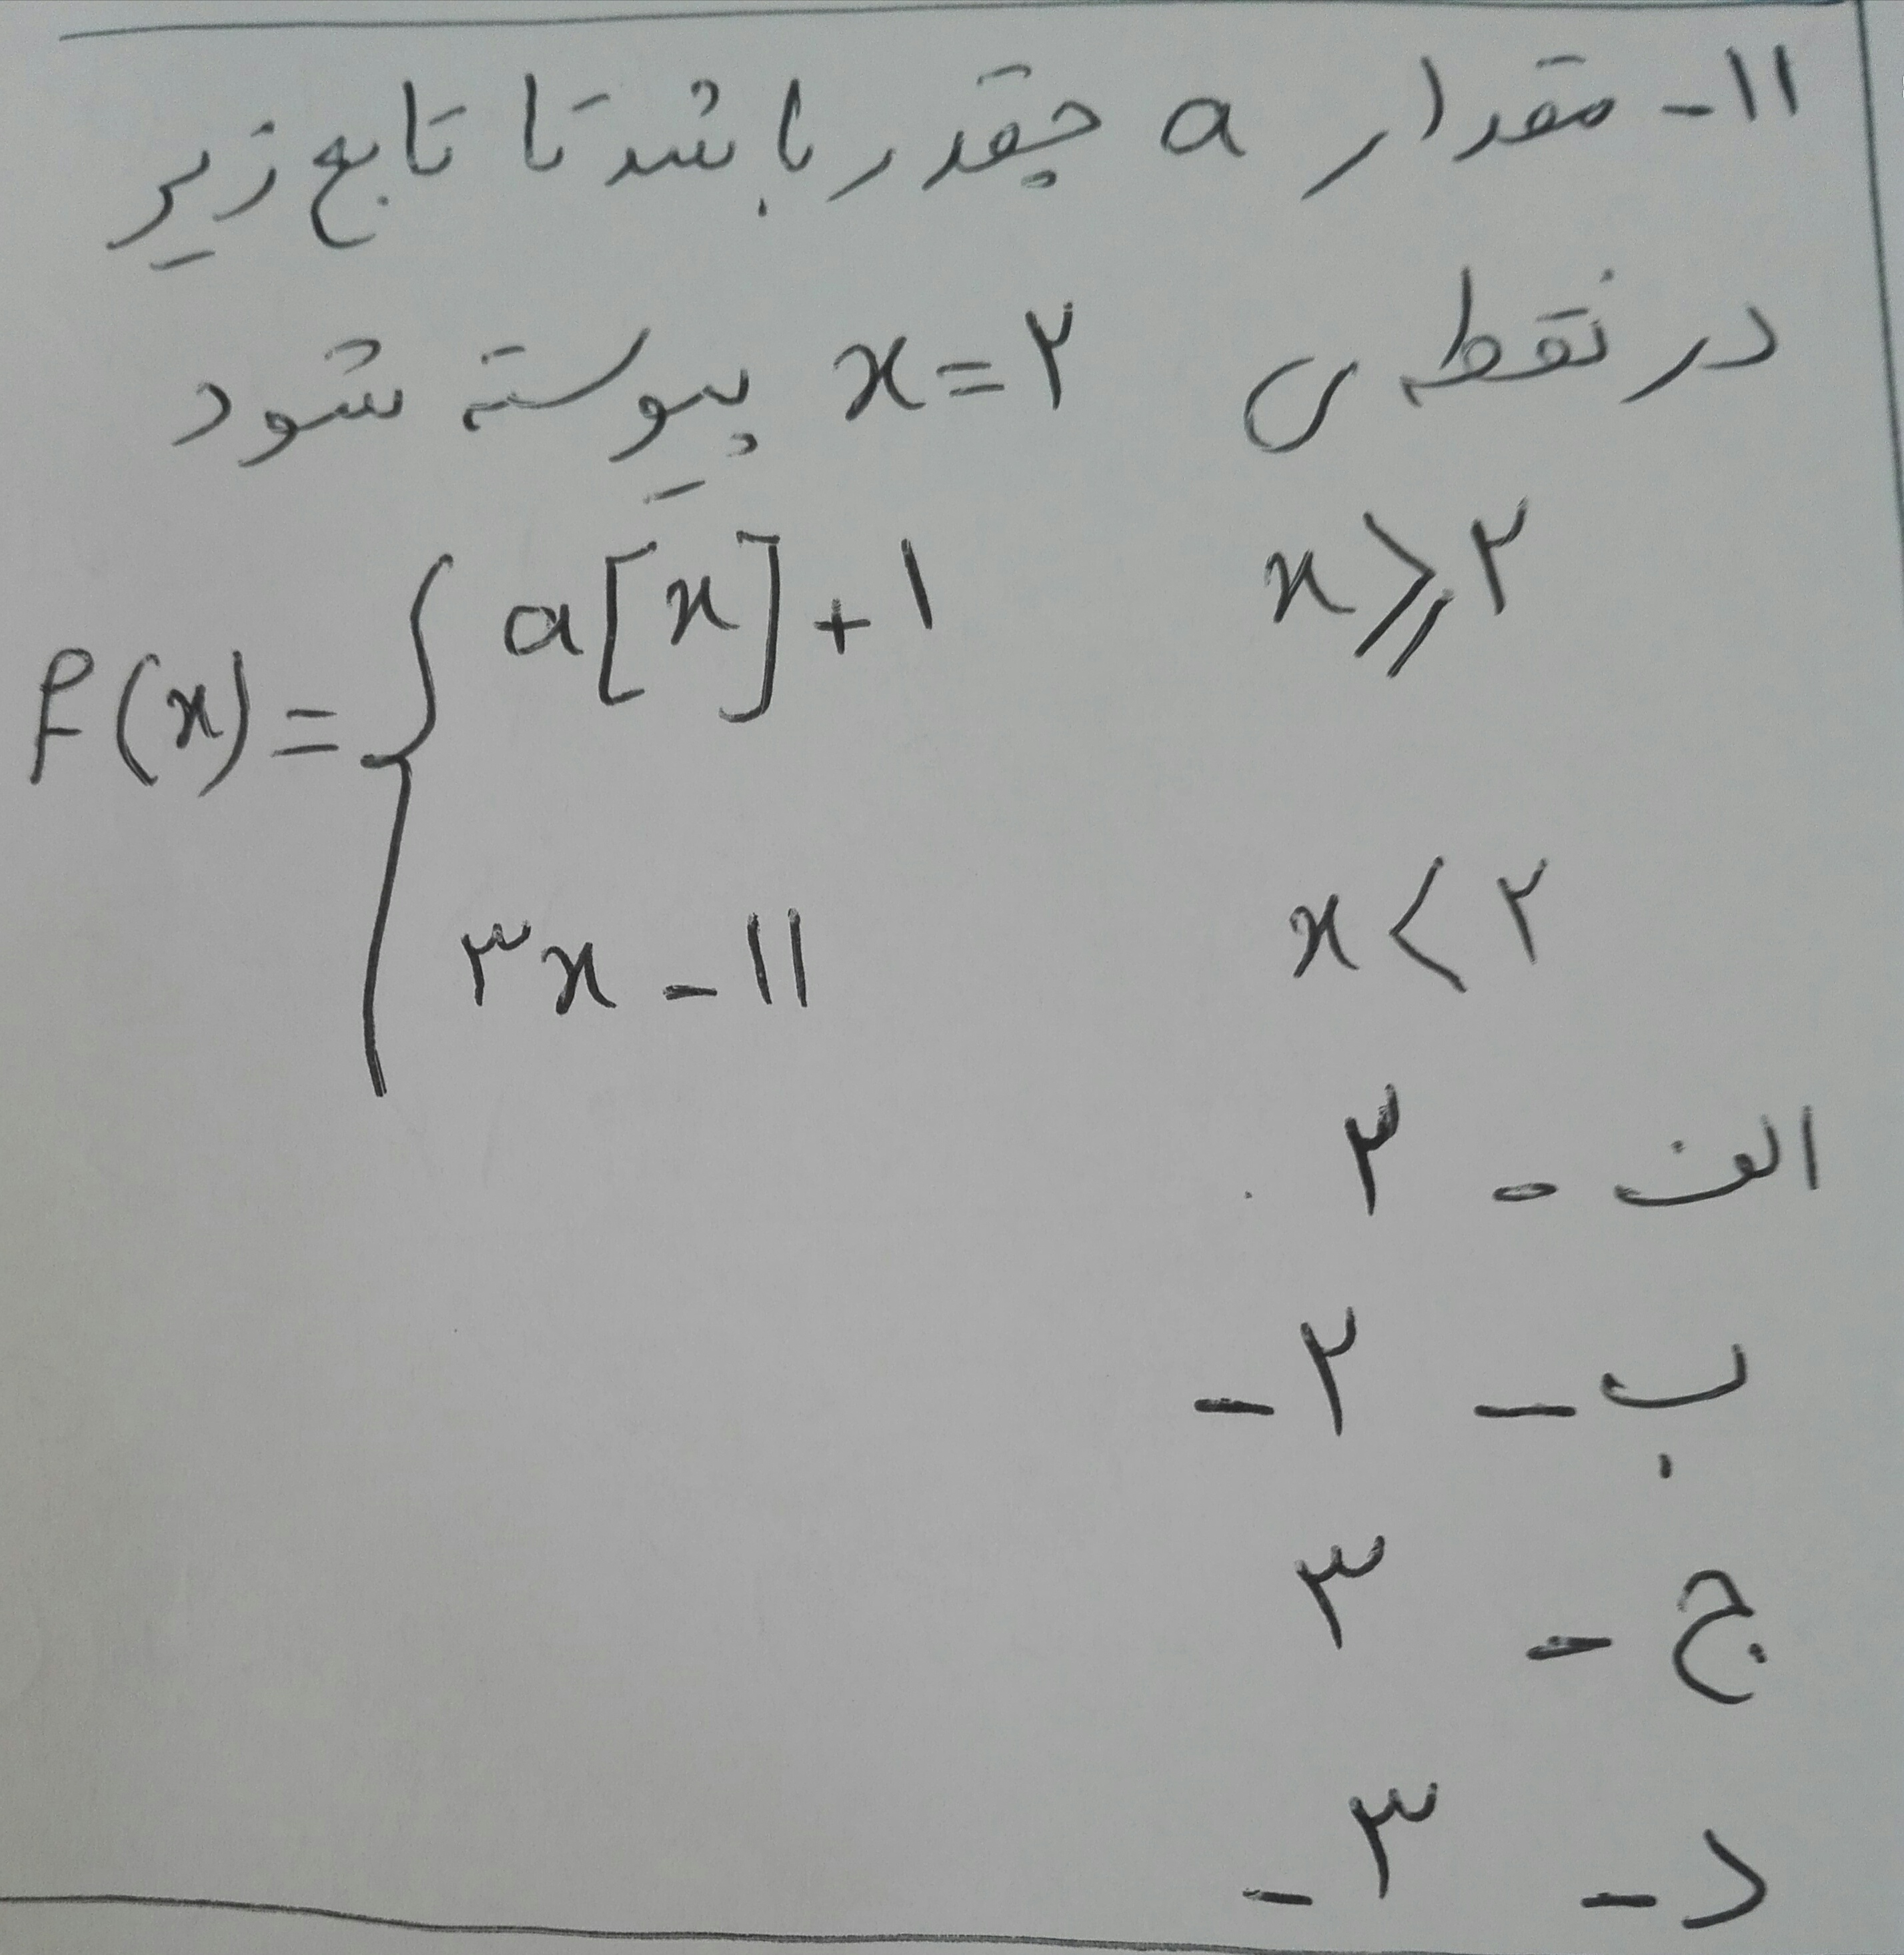 ۱۱- مقدار a چقدر باشد تا تابع زیر
در نقطه ی x=۲ پیوسته شود
f(x)= { a[x]+۱ x⩾۲
۳x-۱۱ x<۲
الف - ۳
ب - ۲-
ج - ۳
د - ۳-